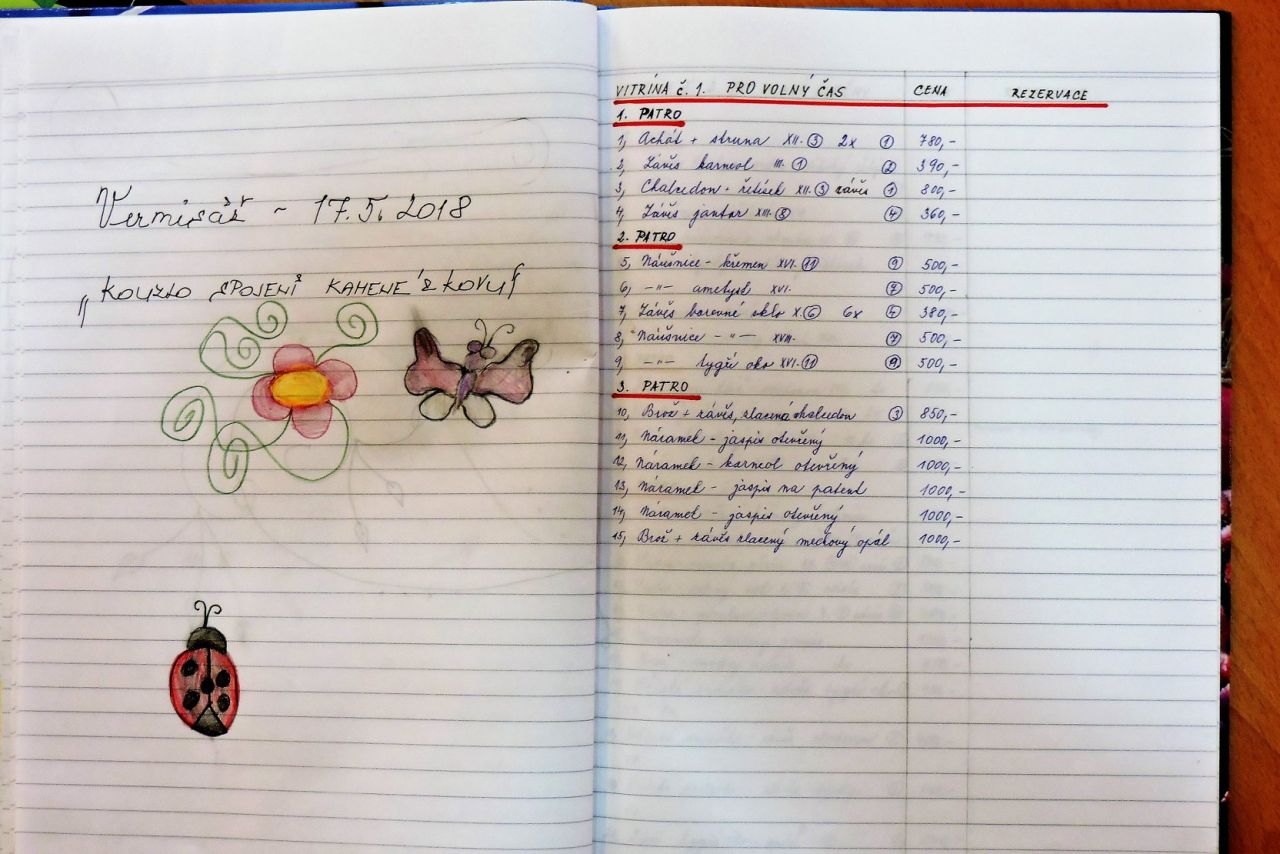 Vernisáž - 17.5.2018
"KOUZLO SPOJENÍ KAMENE Z KOVU"
VITRÍNA č. 1. PRO VOLNÝ ČAS CENA REZERVACE
1. PATRO
1, Achát + struna XII. 3 2x 1 780,-
2, Závěs karneol III. 1 2 390,-
3, Chalcedon + řetízek XII. 3 závěs 1 800,-
4, Závěs jantar XIII. 8 4 360,-
2. PATRO
5, Náušnice - křemen XVI. 11 9 500,-
6, -"- ametyst XVI. 7 500,-
7, Závěs barevné sklo X. 6 6x 4 380,-
8, Náušnice -"- XVII. 7 500,-
9, -"- tygří oko XVI. 11 9 500,-
3. PATRO
10, Brož + závěs, zlacená chalcedon 3 850,-
11, Náramek - jaspis otevřený 1000,-
12, Náramek - karneol otevřený 1000,-
13, Náramek - jaspis na patent 1000,-
14, Náramek - jaspis otevřený 1000,-
15, Brož + závěs zlacený medový opál 1000,-